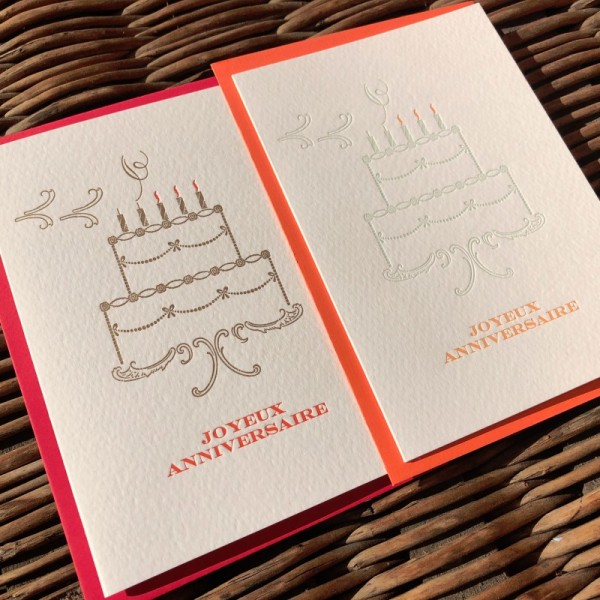 JOYEUX
ANNIVERSAIRE
JOYEUX
ANNIVERSAIRE